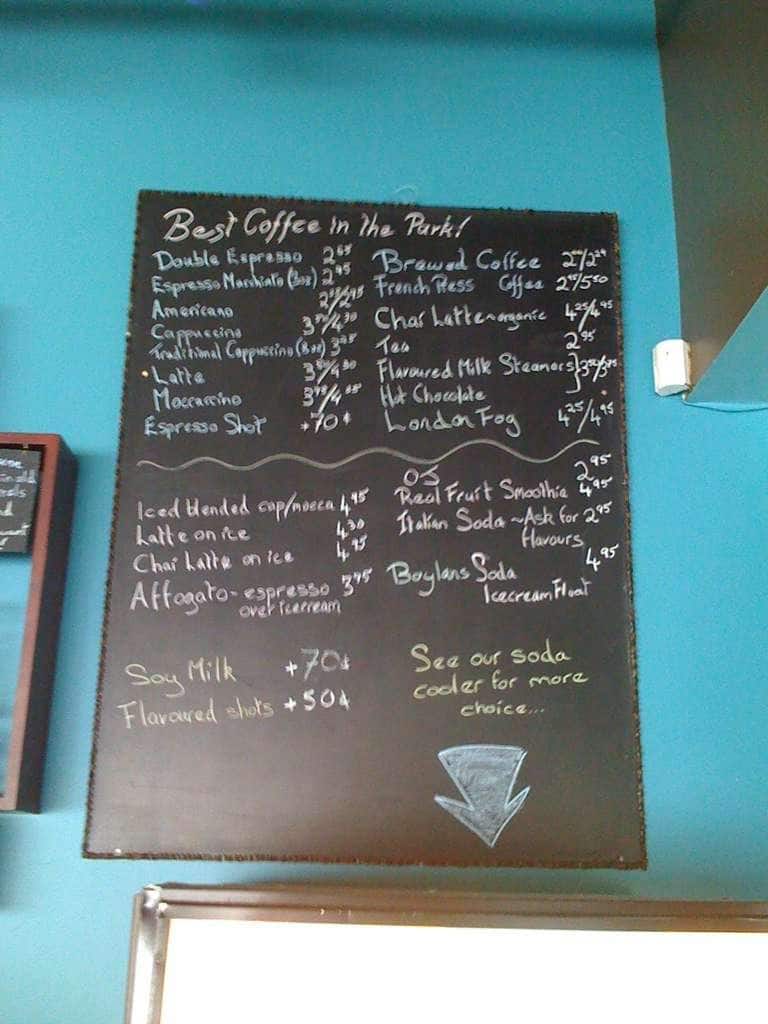 Best Coffee in the Park!
Double Espresso 2⁶⁵
Espresso Macchiato (3oz) 2⁹⁵
Americano
Cappuccino
Traditional Cappuccino (8oz)
Latte
Moccaccino
Espresso Shot +70¢
Brewed Coffee
French Press Coffee
Chai Latte ~ organic 4²⁵/4⁹⁵
Tea 2⁹⁵
Flavoured Milk Steamers
Hot Chocolate
London Fog 4²⁵/4⁹⁵
Iced blended cap/mocca 4⁹⁵
Latte on ice 4³⁰
Chai Latte on ice 4⁹⁵
Affogato - espresso 3⁹⁵
over icecream
OJ 2⁹⁵
Real Fruit Smoothie 4⁹⁵
Italian Soda ~ Ask for 2⁹⁵
flavours
Boylans Soda 4⁹⁵
Icecream Float
Soy Milk +70¢
Flavoured shots +50¢
See our soda
cooler for more
choice...